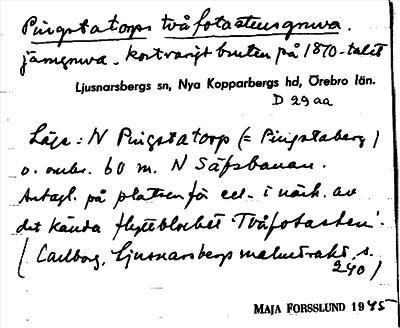 Pingstatorps tvåfotastensgruva.
järngruva. kortvarigt bruten på 1870-talet
Ljusnarsbergs sn, Nya Kopparbergs hd, Örebro län.
D 29 aa
Läge: N Pingstatorp (= Pingstaberg)
o. omkr. 60 m. N Säfsbanan.
Antagl. på platsen för el. i närh. av
det kända flyttblocket "Tvåfotasten".
(Carlborg, Ljusnarsbergs malmtrakt, s.
240)
MAJA FORSSLUND 1945